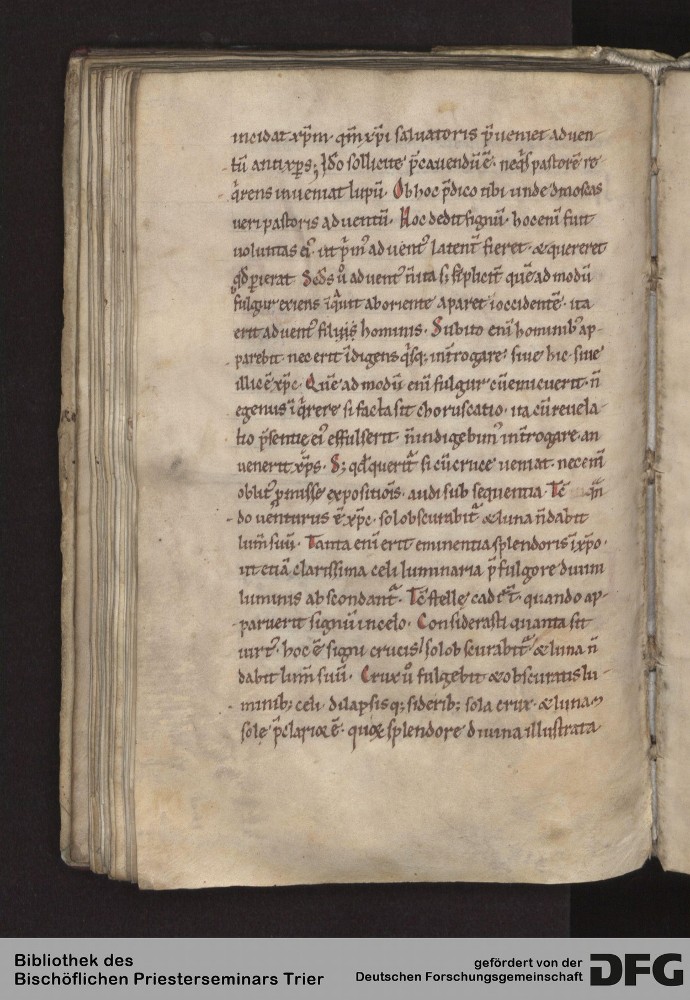 incidat xp̄m· qm̄ xp̄i saluatoris p̄ueniet aduen
tū antixp̄s; Id̄o sollicite p̄cauendū ē· neq̄s pastorē re
q̄rens inueniat lupū· Ob hoc p̄dico tibi unde dinoscas
ueri pastoris aduentū· Hoc dedit signū· hoc enī fuit
uoluntas ei᾽· ut p̄m᾽ aduent᾽ latent̄ fieret· & quereret
qd̄ perierat Scd̄s ů aduent᾽ n̄ ita s; sīplicit̄ quē ad modū
fulgur exiens īquit ab oriente aparet ī occidentē· ita
erit aduent᾽ filii hominis· Subito enī hominib᾽ ap-
parebit· nec erit īdigens q̄sq; int̄rogare· siue hic· siue
illic ē xp̄c· Quē ad modū enī fulgur cū emicuerit· n̄
egenus ī q̄rere si facta sit choruscatio· ita cū reuela
tio p̄sentie ei᾽ effulserit· n̄ indigebim᾽ int̄rogare· an
uenerit xp̄s· S; qd̄ querit̄ si cū cruce ueniat· nec enī
oblit᾽ p̄misse expositiōis· audi sub sequentia· Tc̄ qn̄
do uenturus ē xp̄c· sol obscurabit̄ & luna n̄ dabit
lum̄ suū· Tanta enī erit eminentia splendoris ī xp̄o·
ut etiā clarissima celi luminaria p̄ fulgore diuini
luminis abscondant̄· Tc̄ stelle cadēt· quando ap-
paruerit signū in celo· Considerasti quanta sit
uirt᾽· hoc ē signi crucis/ sol obscurabit̄ & luna n̄
dabit lum̄ suū· Crux ů fulgebit & obscuratis lu-
minib; celi· dilapsisq; siderib; sola crux· & luna &
sole p̄clarior ē· quę splendore diuina illustrata
Bibliothek des
Bischöflichen Priesterseminars Trier
gefördert von der
Deutschen Forschungsgemeinschaft
DFG